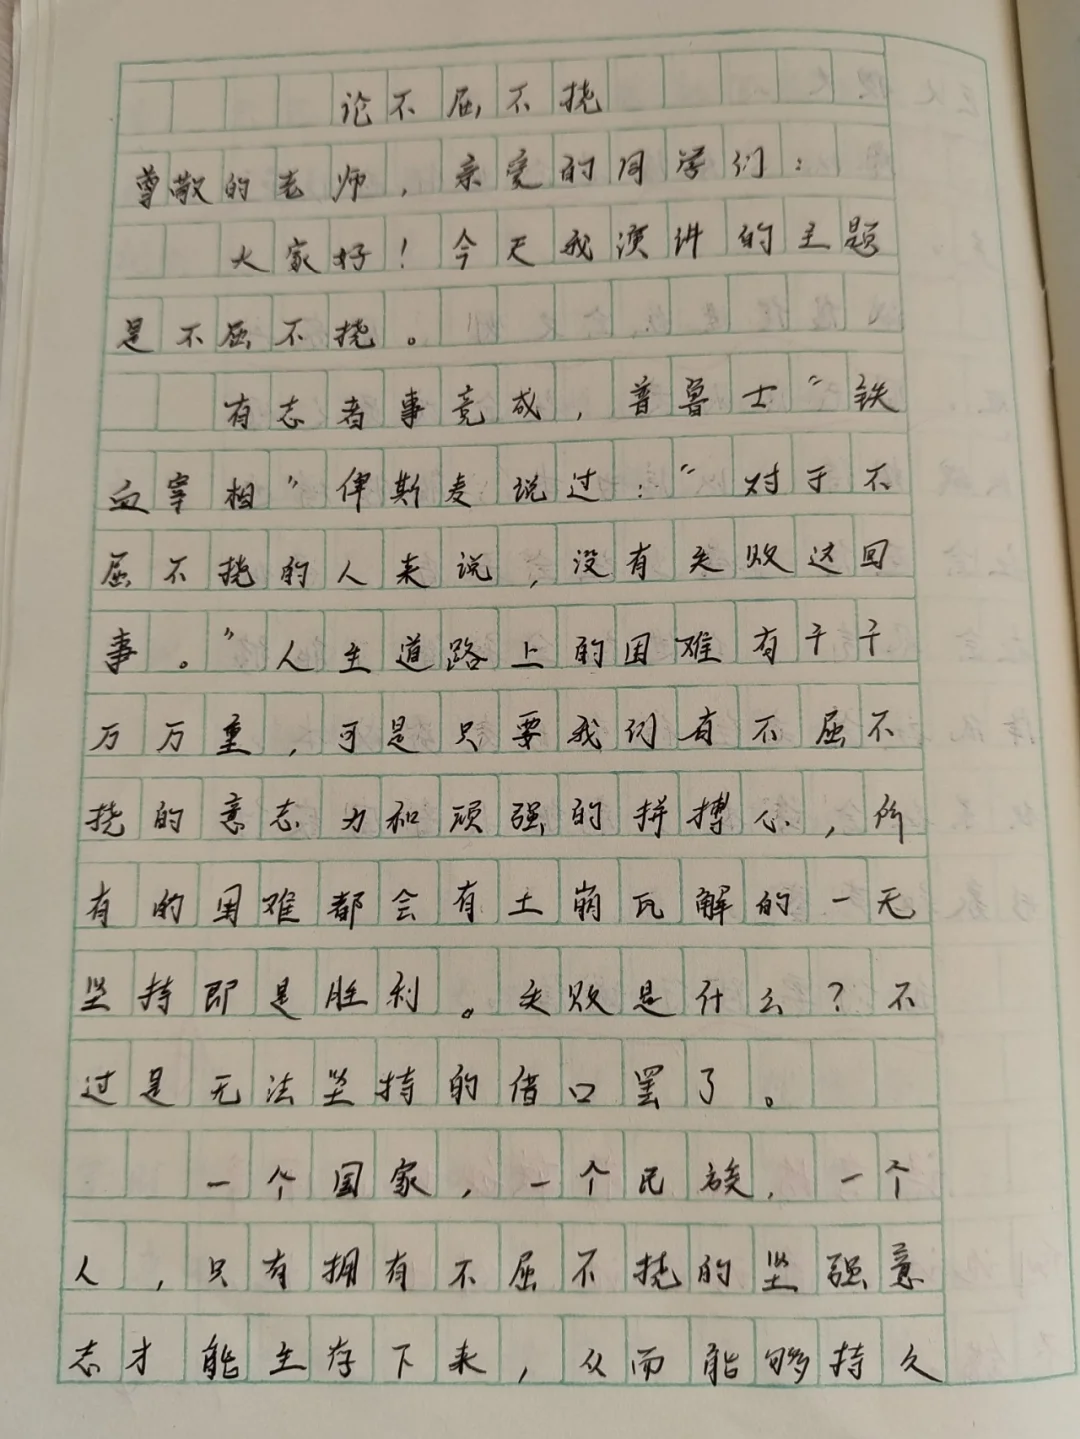 论不屈不挠
尊敬的老师,亲爱的同学们:
大家好!今天我演讲的主题
是不屈不挠。
有志者事竟成,普鲁士“铁
血宰相”俾斯麦说过:“对于不
屈不挠的人来说,没有失败这回
事。”人生道路上的困难有千千
万万重,可是只要我们有不屈不
挠的意志力和顽强的拼搏心,所
有的困难都会有土崩瓦解的一天
坚持即是胜利。失败是什么?不
过是无法坚持的借口罢了。
一个国家,一个民族,一个
人,只有拥有不屈不挠的坚强意
志才能生存下来,从而能够持久